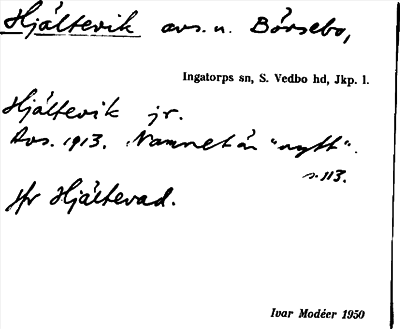 Hjältevik avs. u. Börsebo,
Ingatorps sn, S. Vedbo hd, Jkp. l.
Hjältevik jr.
Avs. 1913. Namnet är "nytt".
s. 113.
Jfr Hjältevad.
Ivar Modéer 1950